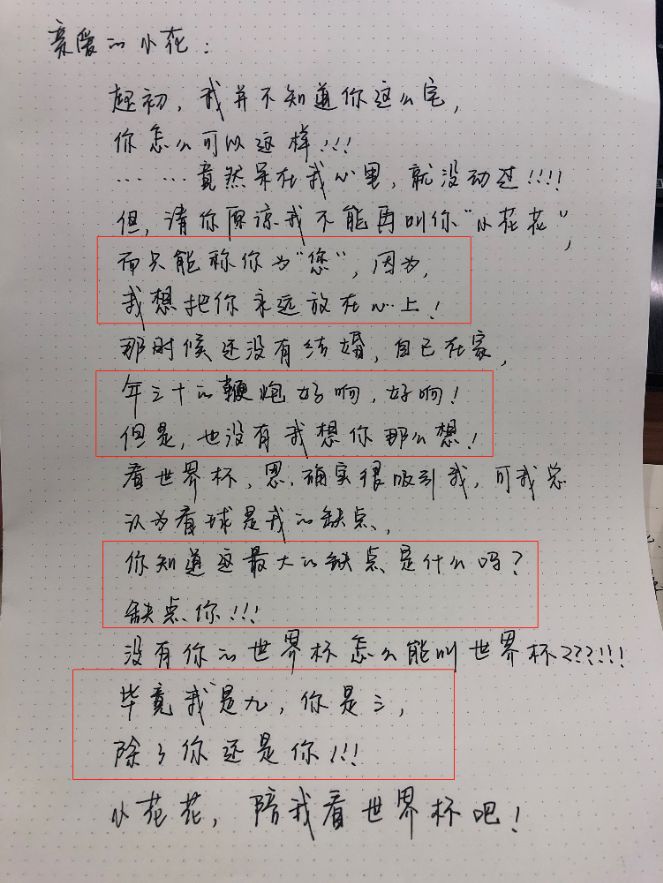 亲爱的小花:
起初,我并不知道你这么宅,
你怎么可以这样!!!
……竟然呆在我心里,就没动过!!!!
但,请你原谅我不能再叫你“小花花”,
而只能称你为“您”,因为,
我想把你永远放在心上!
那时候还没有结婚,自己在家,
年三十的鞭炮好响,好响!
但是,也没有我想你那么想!
看世界杯,恩,确实很吸引我,可我总
认为看球是我的缺点,
你知道这最大的缺点是什么吗?
缺点你!!!
没有你的世界杯怎么能叫世界杯???!!!
毕竟我是九,你是三,
除了你还是你!!!
小花花,陪我看世界杯吧!